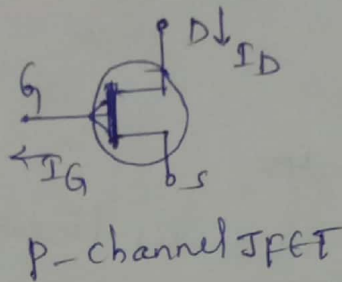 D↓
I_D
G
←I_G
S
P-channel JFET